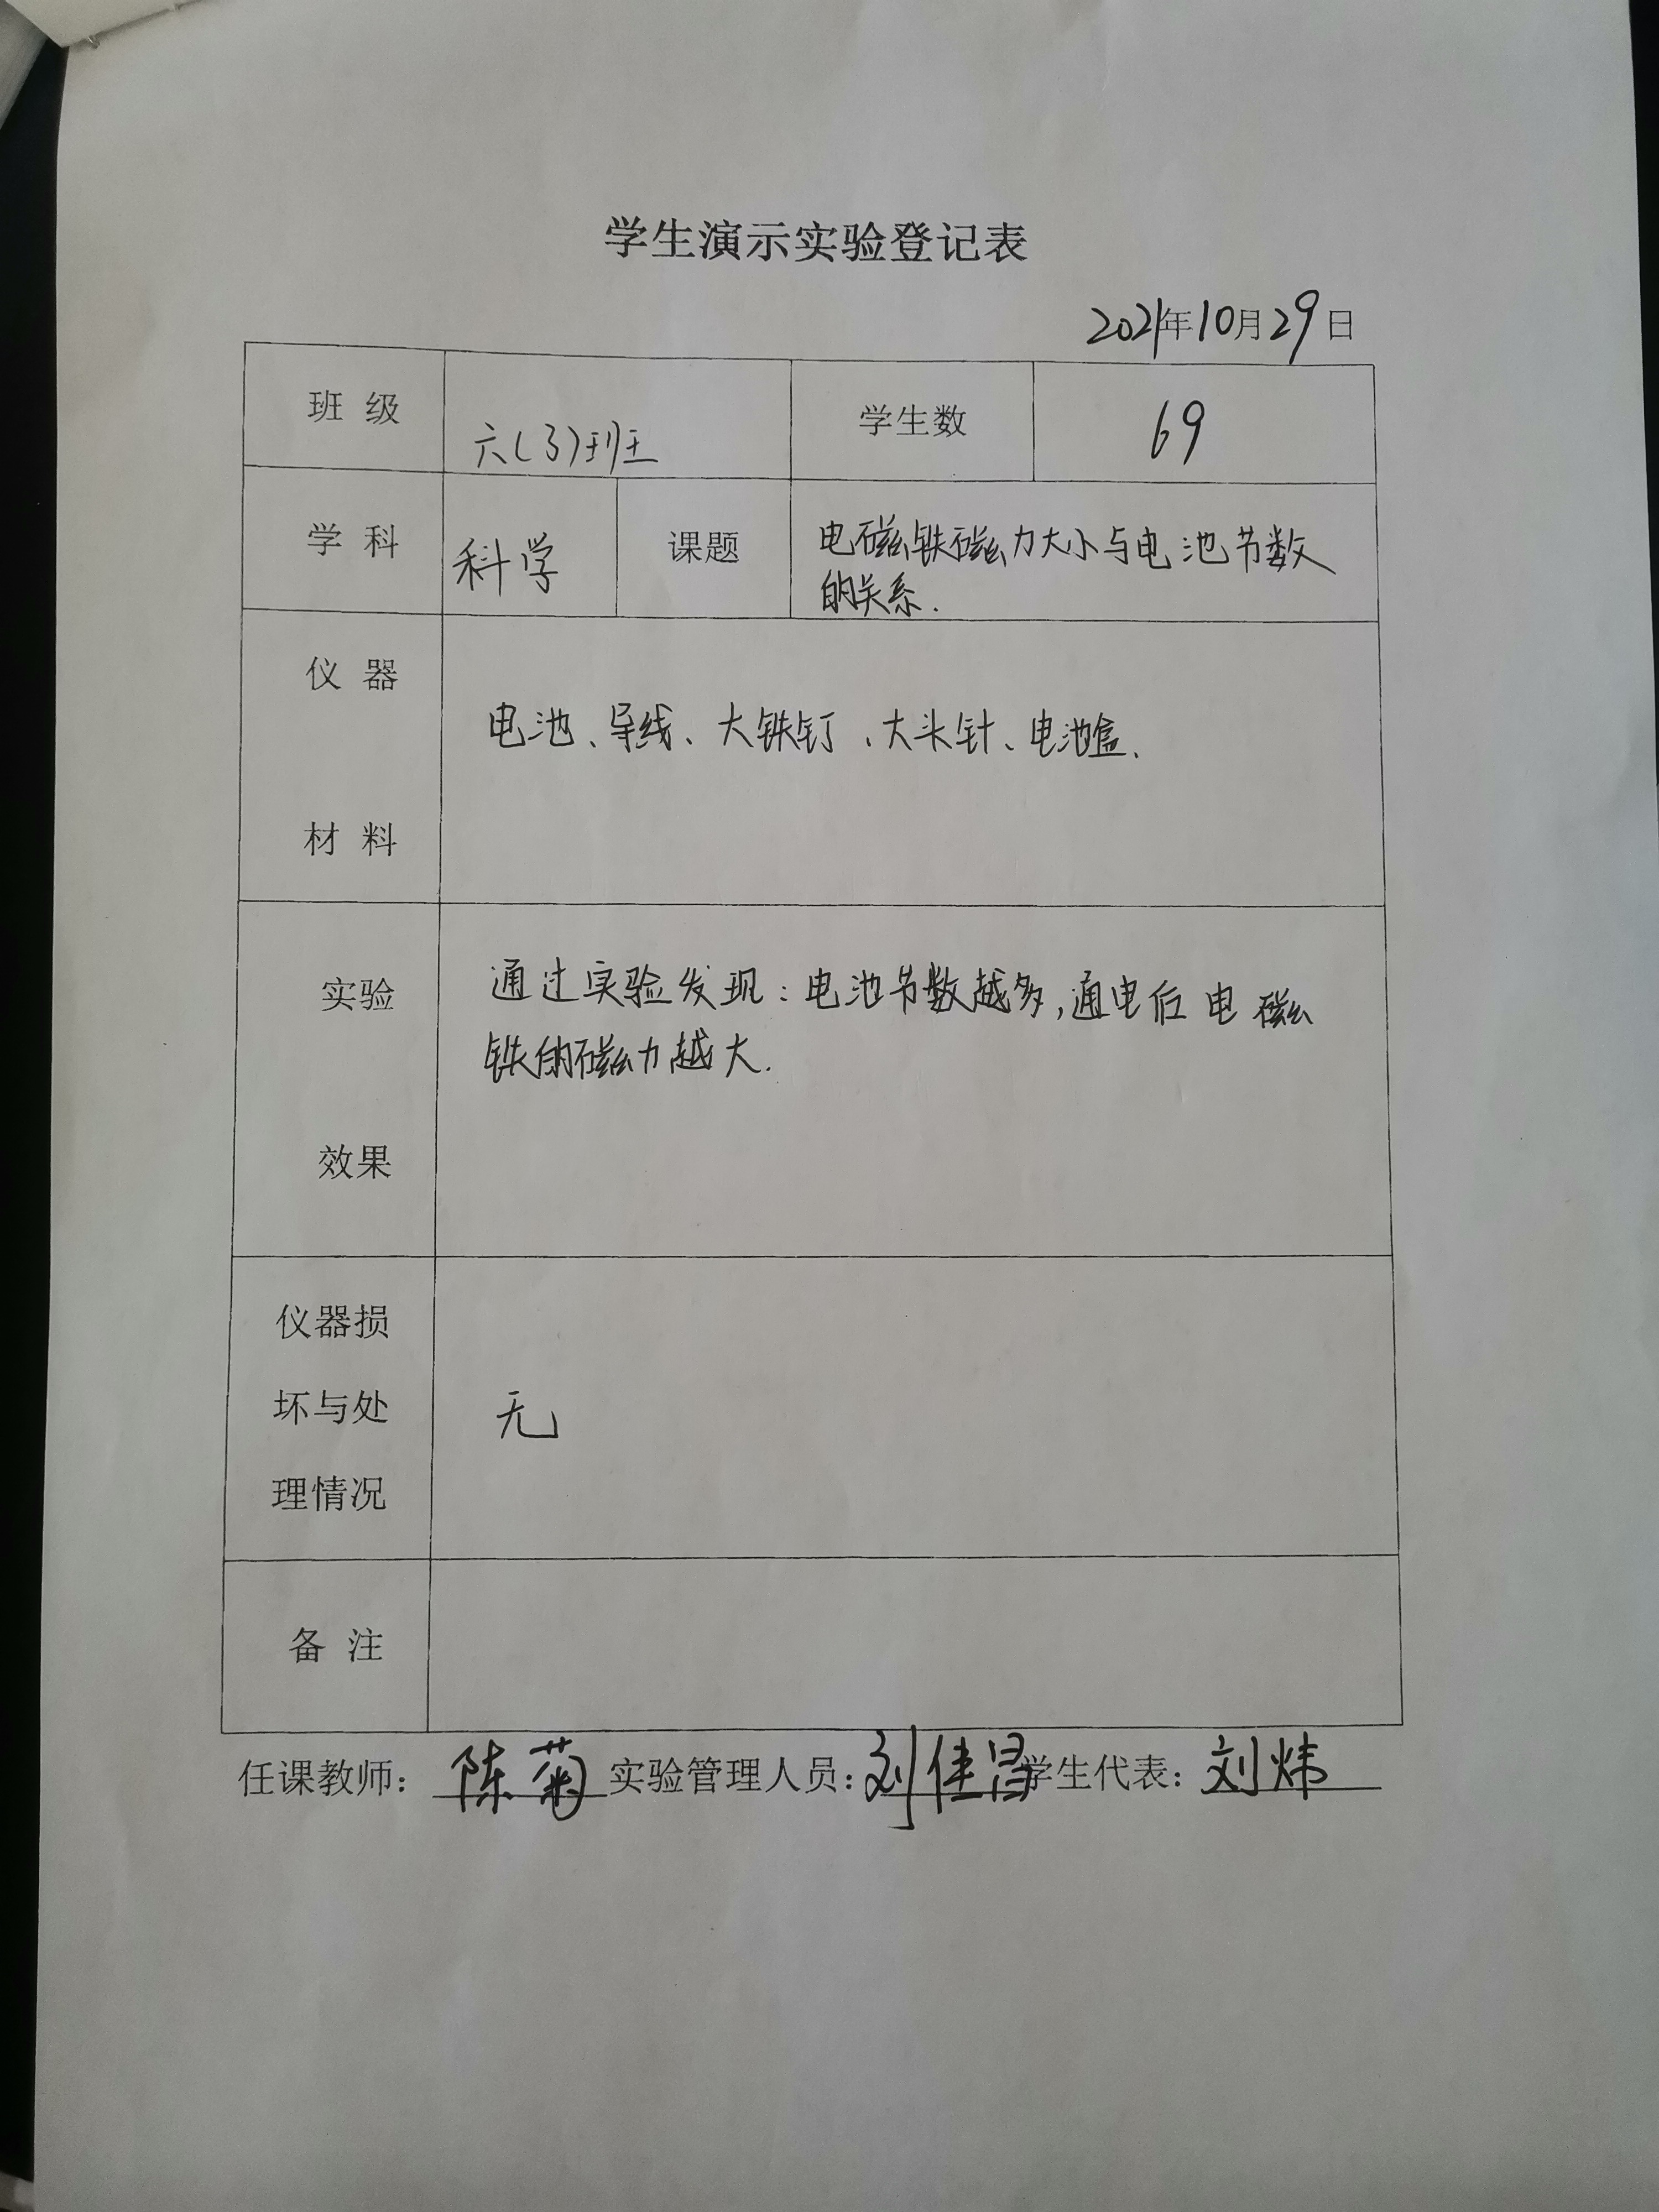 学生演示实验登记表
2021年10月29日
班 级 六(3)班 学生数 69
学 科 科学 课题 电磁铁磁力大小与电池节数
的关系.
仪 器
电池、导线、大铁钉、大头针、电池盒、
材 料
实验 通过实验发现:电池节数越多,通电后电磁
铁的磁力越大.
效果
仪器损
坏与处 无
理情况
备 注
任课教师: 陈菊 实验管理人员: 刘佳昌 学生代表: 刘炜